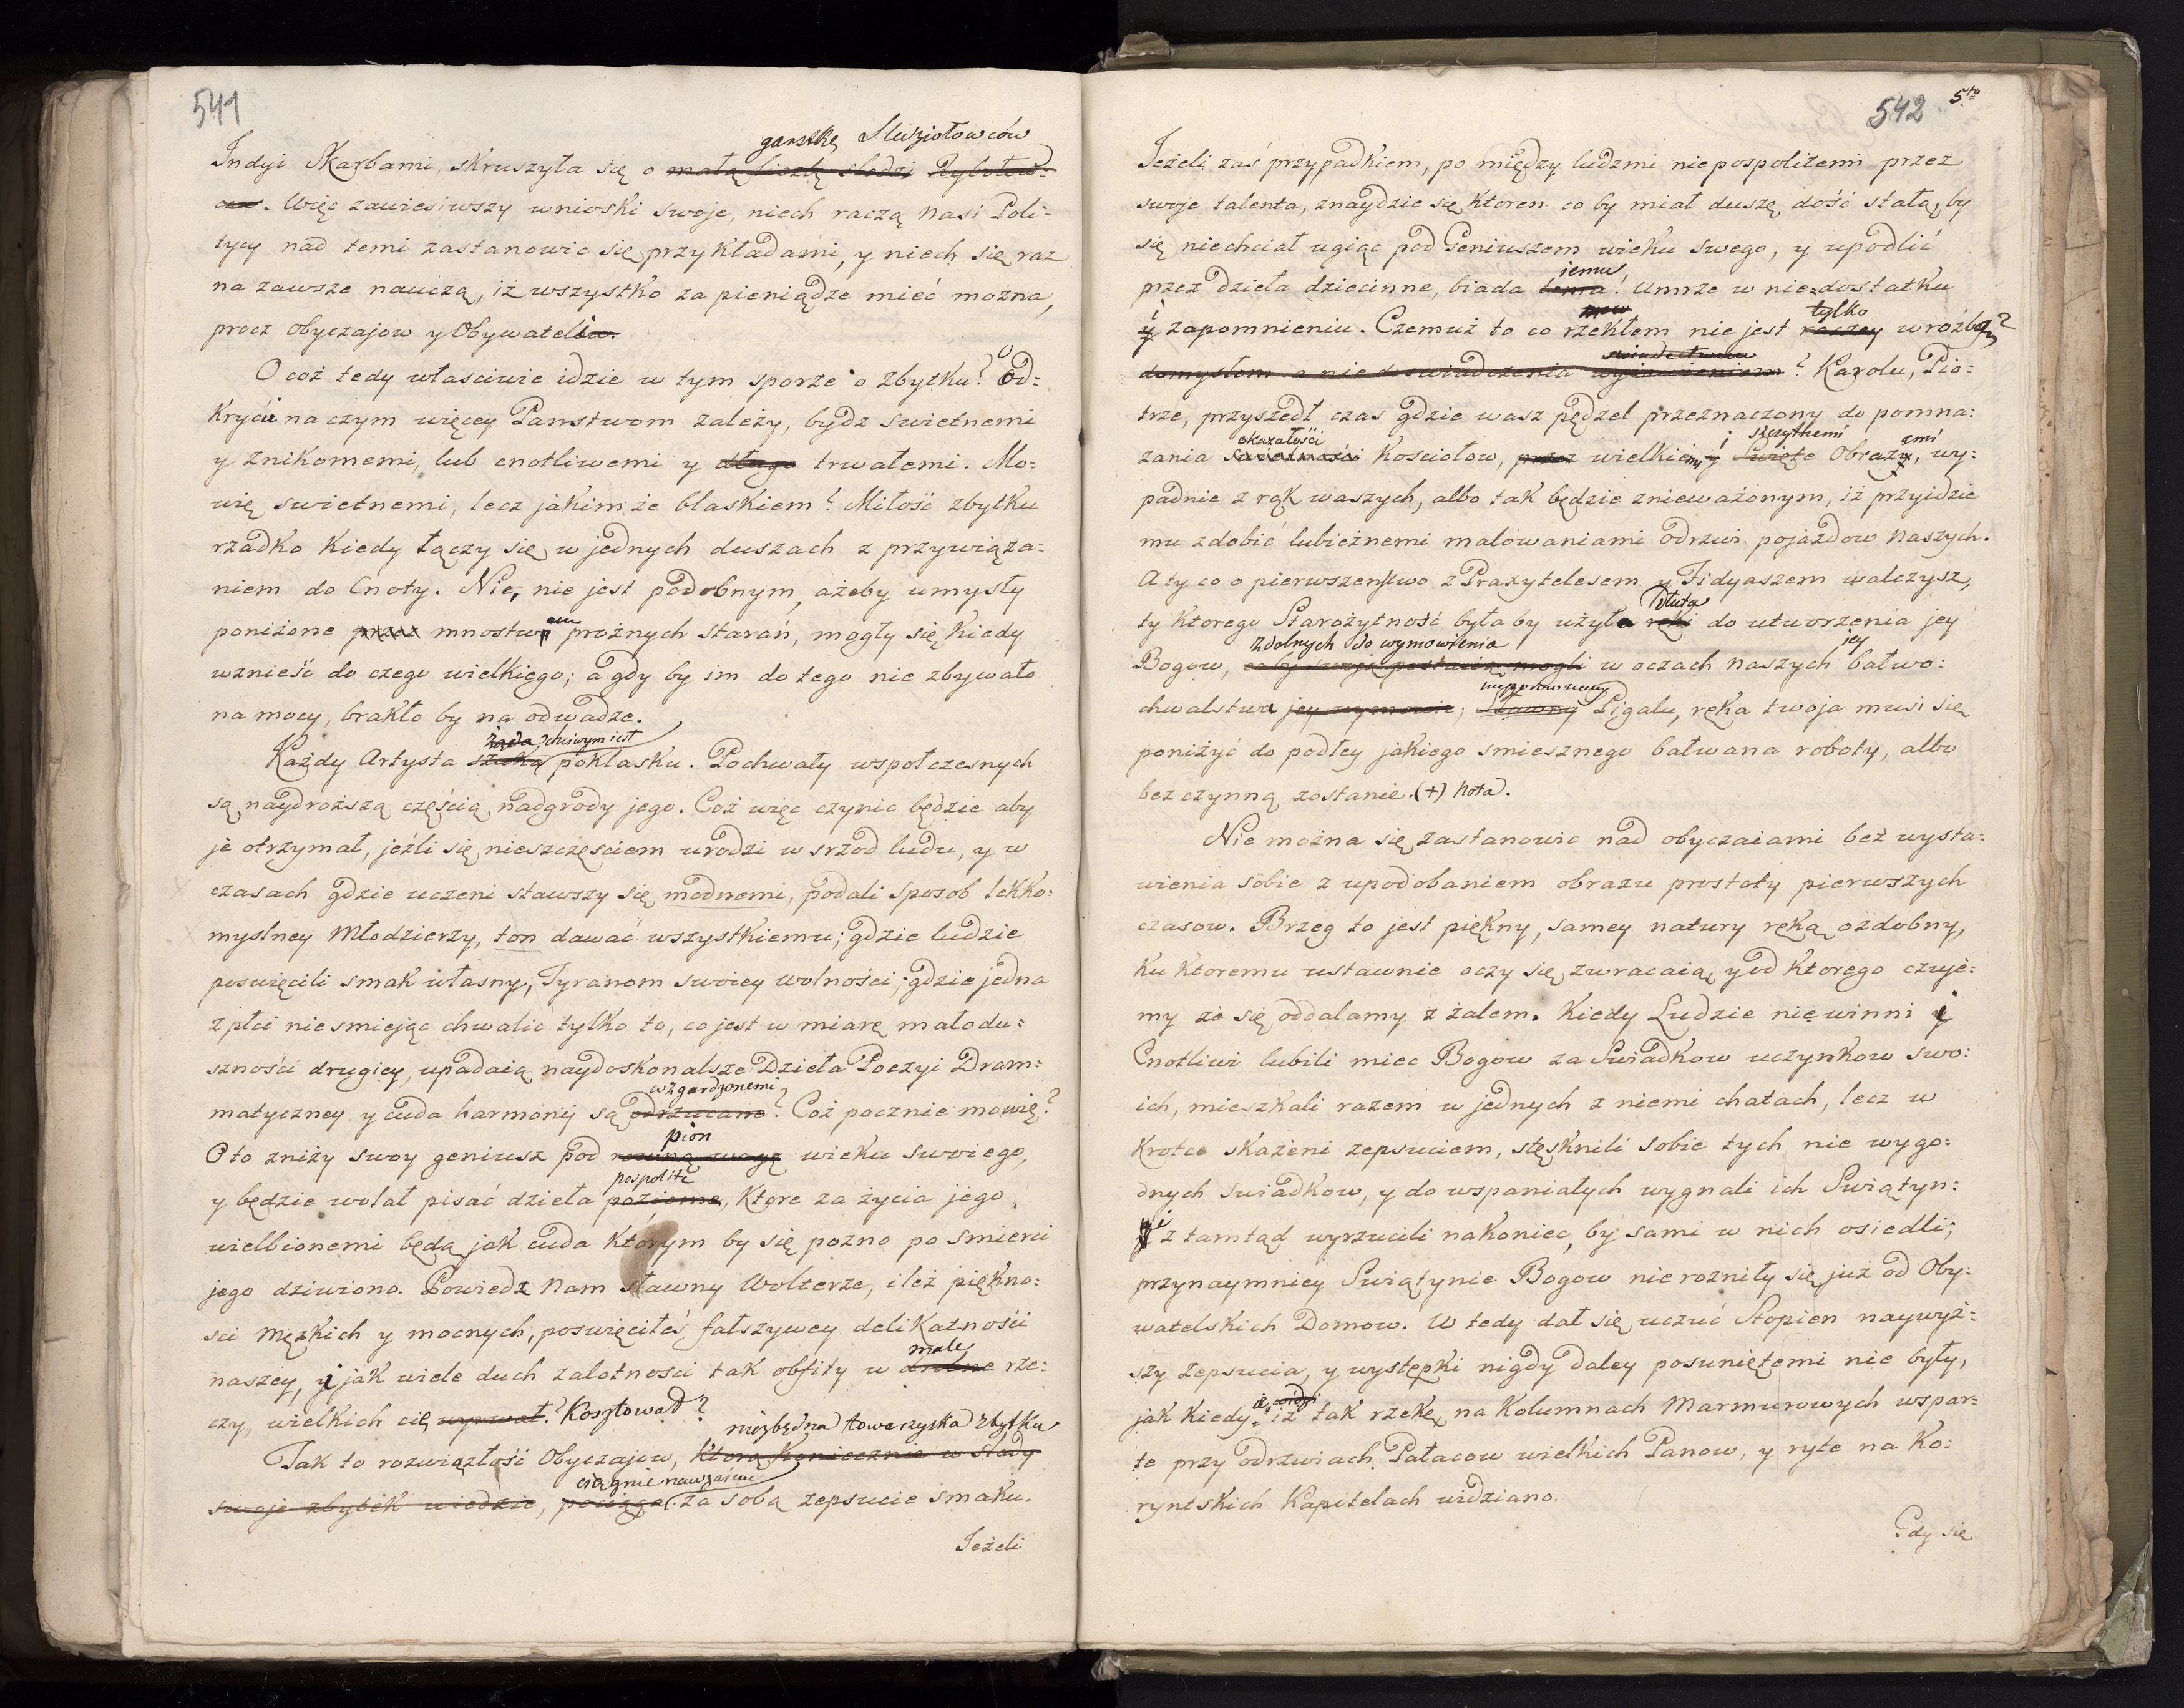 541
garstkę Sluziołowców
Indyi Skarbami, skruszyła się o małą liczbę śledzi Rybołow=
ców. Więc zawiesiwszy wnioski swoje, niech raczą nasi Poli=
tycy nad temi zastanowic się przykładami, y niech się raz
na zawsze nauczą, iż wszystko za pieniądze mieć można,
procz obyczajow y Obywateli.
O coż tedy własciwie idzie w tym sporze o zbytku? o od=
kryciu na czym więcey Panstwom zależy, bydz swietnemi
y znikomemi, lub cnotliwemi y długo trwałemi. Mo=
wię swietnemi, lecz jakim że blaskiem? Miłość zbytku
rzadko kiedy łączy się w jednych duszach z przywiąza=
niem do Cnoty. Nie, nie jest podobnym, ażeby umysły
em
poniżone przez mnostw prożnych starań, mogły się kiedy
wznieść do czego wielkiego; a gdy by im do tego nie zbywało
na mocy, brakło by na odwadze.
żąda chciwym iest
Każdy Artysta szuka poklasku. Pochwały wspołczesnych
są naydroższą częścią nadgrody jego. Coż więc czynic będzie aby
je otrzymał, jeźli się nieszczęsciem urodzi w srzod ludu, y w
czasach gdzie uczeni stawszy się modnemi, podali sposob lekko=
myslney Młodzierzy, ton dawać wszystkiemu; gdzie ludzie
poswięcili smak własny, Tyranom swoiey wolności; gdzie jedna
z płci nie smiejąc chwalić tylko to, co jest w miarę małodu=
szności drugiey, upadaią naydoskonalsze Dzieła Poezyi Dram=
wzgardzonemi
matyczney y cuda harmonij są odrzucane? Coż pocznie mowię?
pion
Oto zniży swoy geniusz pod rowną wagę wieku swoiego,
pospolite
y będzie wolał pisać dzieła poziome, ktore za życia jego
wielbionemi będą jak cuda ktorym by się pozno po smierci
jego dziwiono. Powiedz nam sławny Wolterze, ileż piękno=
sci męzkich y mocnych, poswięciłeś fałszywey delikatności
małe
naszey, i jak wiele duch zalotnosci tak obfity w drobne rze=
czy, wielkich cię wyzwał? Kosztował?
niezbędna towarzyszka zbytku
Tak to rozwiązłość Obyczajow, ktorą koniecznie w slady
ciągnie nawzaiem
swoje zbytek wiedzie, pociąga za sobą zepsucie smaku.
Jeżeli
542 5to
Jeżeli zaś przypadkiem, po między ludzmi niepospolitemi przez
swoje talenta, znaydzie się ktoren co by miał duszę dość stałą, by
się niechciał ugiąc pod Geniuszem wieku swego, y upodlić
iemu
przez dzieła dziecinne, biada temu! Umrze w nie=dostatku
tylko
i zapomnieniu. Czemuż to co rzekłem nie jest raczey wrożbą?
swiadectwem
domysłem a nie doswiadczenia wyiawieniem? Karolu, Pio=
trze, przyszedł czas gdzie wasz pędzel przeznaczony do pomna=
okazałości i szczytnemi emi
zania swietności Kosciołow, przez wielkiemi y Swięte Obrazy, wy=
padnie z rąk waszych, albo tak będzie znieważonym, iż przyidzie
mu zdobić lubieżnemi malowaniami odrzwi pojazdow naszych.
A ty co o pierwszenstwo z Praxytelesem y Fidyaszem walczysz,
Dłuta
ty ktorego Starożytność była by użyła ręki do utworzenia jey
zdolnych do wymowienia jey
Bogow, coby swoją postacią mogli w oczach naszych bałwo=
niezrownany
chwalstwa jey wymowic, Sławny Pigalu, ręka twoja musi się
poniżyć do podłey jakiego smiesznego bałwana roboty, albo
bezczynną zostanie. (+) Nota.
Nie można się zastanowic nad obyczaiami bez wysta=
wienia sobie z upodobaniem obrazu prostoty pierwszych
czasow. Brzeg to jest piękny, samey natury ręką ozdobny,
ku ktoremu ustawnie oczy się zwracaią y od ktorego czuje=
my że się oddalamy z żalem. Kiedy Ludzie niewinni i
Cnotliwi lubili miec Bogow za Swiadkow uczynkow swo=
ich, mieszkali razem w jednych z niemi chatach, lecz w
krotce skażeni zepsuciem, stęsknili sobie tych nie wygo=
dnych swiadkow, y do wspaniałych wygnali ich Swiątyn=
i z tamtąd wyrzucili nakoniec, by sami w nich osiedli;
przynaymniey Swiątynie Bogow nie rozniły się już od Oby=
watelskich Domow. W tedy dał się uczuć Stopien naywyż=
szy zepsucia, y występki nigdy daley posuniętemi nie były,
jak kiedy iż tak rzekę, na Kolumnach Marmurowych wspar=
te przy odrzwiach Pałacow wielkich Panow, y ryte na Ko=
ryntskich Kapitelach widziano.
Gdy się